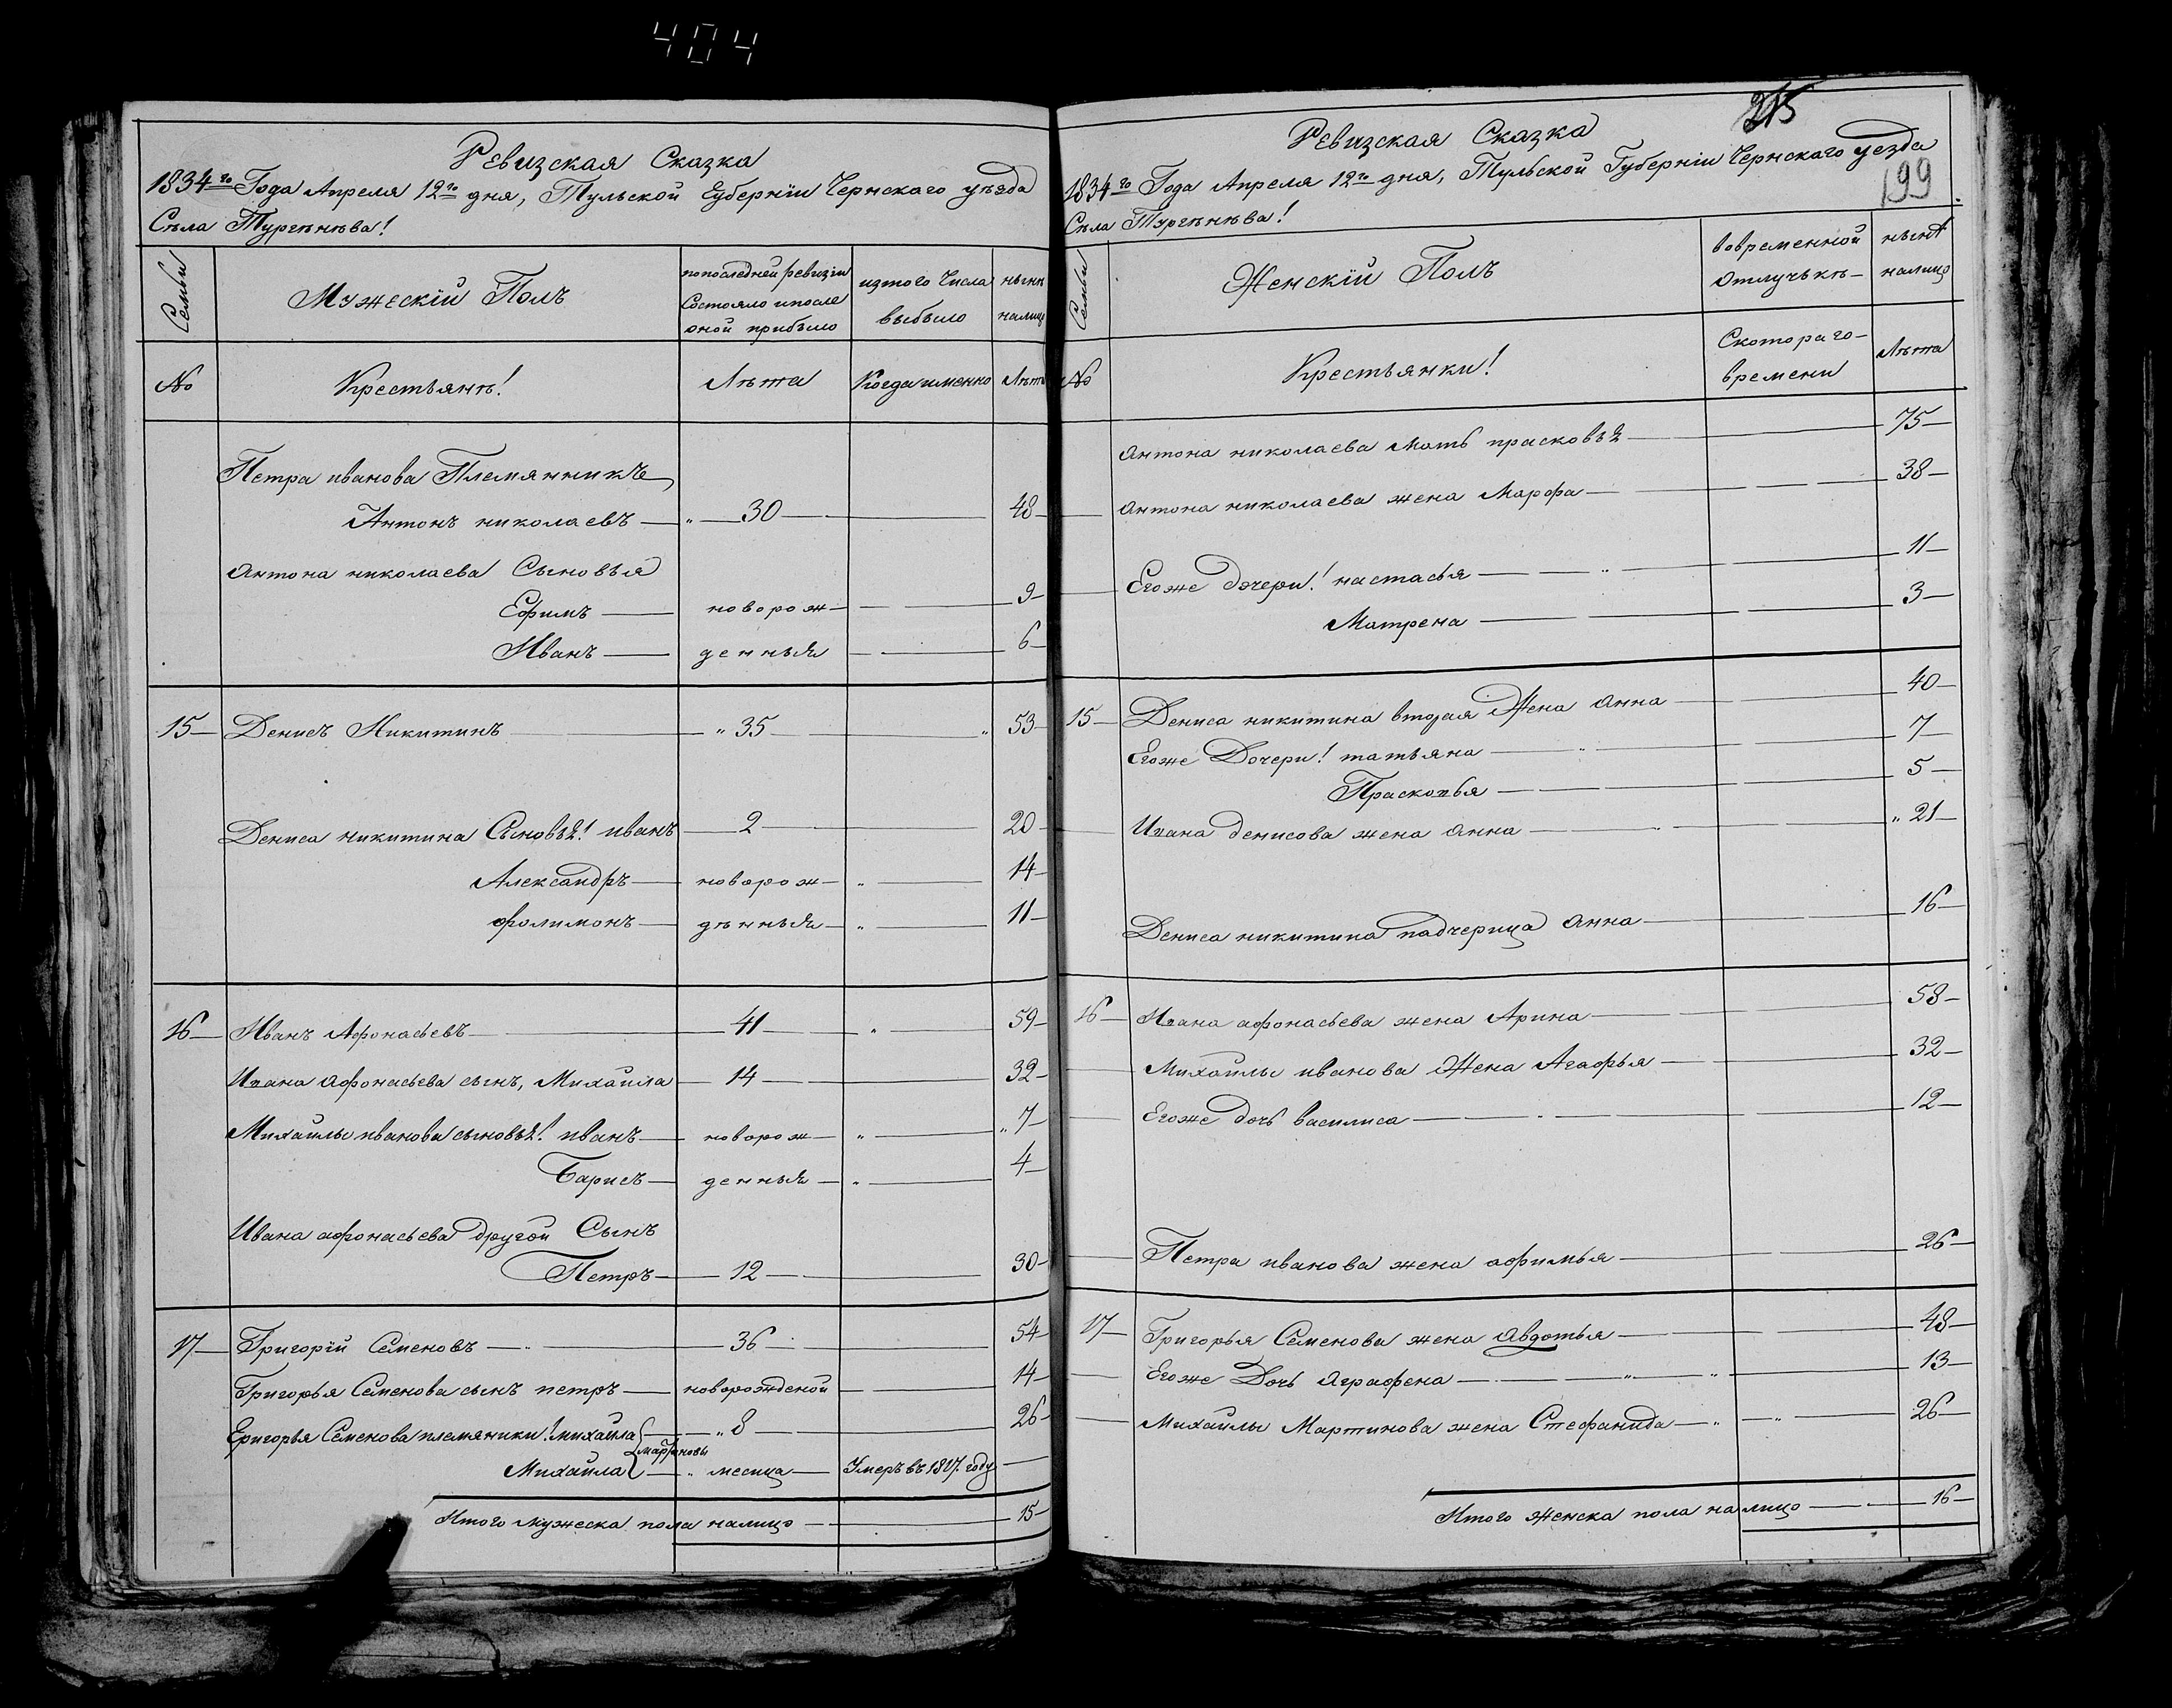 404
Ревизская Сказка
1834го Года Апреля 12го дня, Тульской Губернїи Чернскаго уѣзда
Сѣла Тургѣнѣва!
Семьи
Мужескїй Полъ
попоследней ревизіи
Состояло ипосле
оной прибыло
изтого Числа
выбыло
нынѣ
налицо
№
Крестьянѣ!
Лѣта
Когда именно
Лѣта
Петра иванова Племянникъ
Антонъ николаевъ — „ — 30 — 48
Антона николаева Сыновья
Ефимъ — новорож — 9
Иванъ — денныя — 6
15 — Денисъ Никитинъ — „ 35 — „ 53
Дениса никитина Сыновья! иванъ — 2 — 20
Александръ — новорож — „ — 14
филимонъ — дѣнныя — „ — 11
16 — Иванъ Афонасьевъ — 41 — „ 59
Ивана афонасьева сынъ, Михайла — 14 — 32
Михайлы иванова сыновья! иванъ — новорож — „ — „ 7
Барисъ — денныя — „ — 4
Ивана афонасьева другой Сынъ
Петръ — 12 — 30
17 — Григорїй Семеновъ — 36 — 54
Григорья Семенова сынъ петръ — новорожденой — 14
Григорья Семенова племяники! михайла — „ 8 — 26
мартиновы
Михайла — „ месица — Умеръ въ 1817. году —
Итого мужеска пола налицо — 15
215
199
Ревизская Сказка
1834го Года Апреля 12го дня, Тульской Губернїи Чернскаго уезда
Сѣла Тургѣнѣва!
Семьи
Женскїй Полъ
вовременной
отлучькѣ —
нынѣ
налицо
№
Крестьянки!
Скотораго —
времени
Лѣта
Антона николаева мать прасковья — 75
Антона николаева жена Марфа — 38
Егоже дочери! настасья — „ — 11
Матрена — 3
15 — Дениса никитина вторая Жена анна — 40
Егоже Дочери! татьяна — 7
Прасковья — 5
Ивана денисова жена анна — „ 21
Дениса никитина падчерица анна — 16
16 — Ивана афонасьева жена Арина — 58
Михайлы иванова Жена Агафья — 32
Егоже дочь василиса — 12
Петра иванова жена афимья — 26
17 — Григорья Семенова жена авдотья — 48
Егоже Дочь аграфена — „ — „ — 13
Михайлы Мартинова жена Стефанида — „ — „ — 26
Итого женска пола налицо — 16